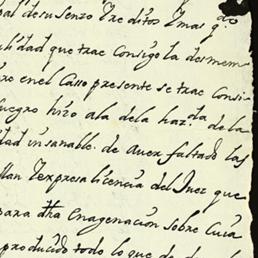 de su senzo Creditos Ymas q.
lidad que trae Consigo la desmem
en el Caso presente se trae Consi
fuegro hizo ala dela haz.da dela
dad insanable. de aver faltado las
Yexpresa licencia del Juez que
para dha Enagenacion sobre Cuia
producido todo lo que de